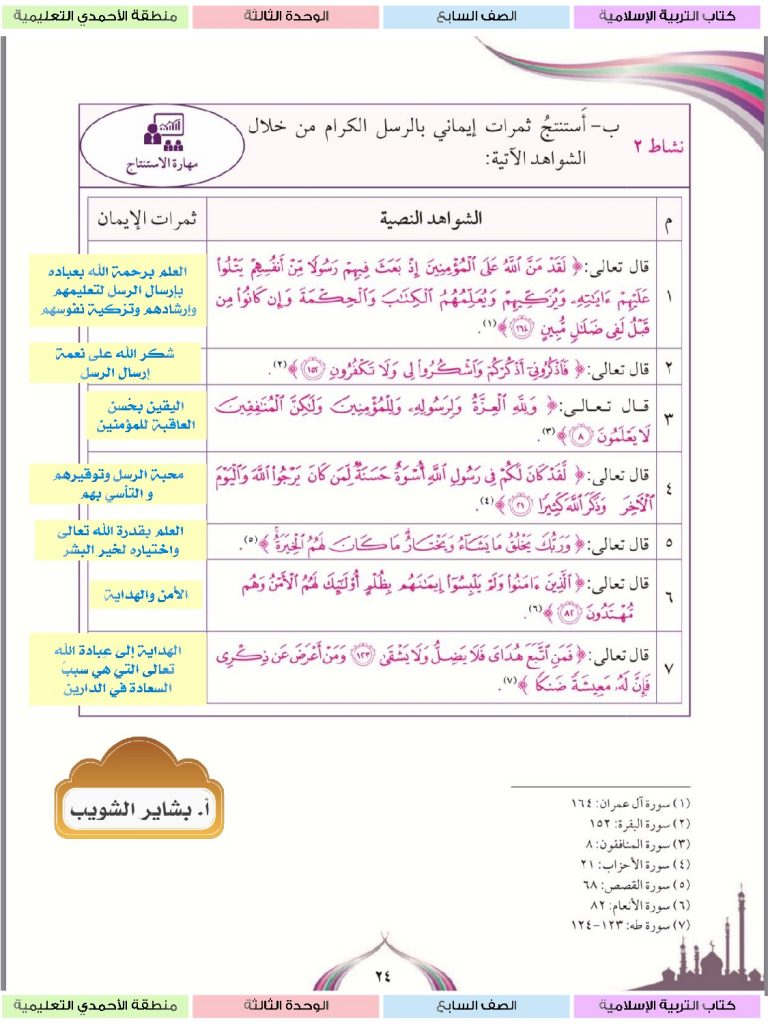 كتاب التربية الإسلامية
الصف السابع
الوحدة الثالثة
منطقة الأحمدي التعليمية
نشاط ٢
ب- أَستنتجُ ثمرات إيماني بالرسل الكرام من خلال
الشواهد الآتية:
مهارة الاستنتاج
م
الشواهد النصية
ثمرات الإيمان
١
قال تعالى: ﴿ لَقَدْ مَنَّ اللَّهُ عَلَى الْمُؤْمِنِينَ إِذْ بَعَثَ فِيهِمْ رَسُولًا مِّنْ أَنفُسِهِمْ يَتْلُوا
عَلَيْهِمْ ءَايَاتِهِ، وَيُزَكِّيهِمْ وَيُعَلِّمُهُمُ الْكِتَابَ وَالْحِكْمَةَ وَإِن كَانُوا مِن
قَبْلُ لَفِي ضَلَالٍ مُّبِينٍ ١٦٤ ﴾(١).
العلم برحمة الله بعباده
بإرسال الرسل لتعليمهم
وإرشادهم وتزكية نفوسهم
٢
قال تعالى: ﴿ فَاذْكُرُونِي أَذْكُرْكُمْ وَاشْكُرُوا لِي وَلَا تَكْفُرُونِ ١٥٢ ﴾(٢).
شكر الله على نعمة
إرسال الرسل
٣
قال تعالى: ﴿ وَلِلَّهِ الْعِزَّةُ وَلِرَسُولِهِ، وَلِلْمُؤْمِنِينَ وَلَكِنَّ الْمُنَافِقِينَ
لَا يَعْلَمُونَ ٨ ﴾(٣).
اليقين بحُسن
العاقبة للمؤمنين
٤
قال تعالى: ﴿ لَّقَدْ كَانَ لَكُمْ فِي رَسُولِ اللَّهِ أُسْوَةٌ حَسَنَةٌ لِّمَن كَانَ يَرْجُوا اللَّهَ وَالْيَوْمَ
الْآخِرَ وَذَكَرَ اللَّهَ كَثِيرًا ٢١ ﴾(٤).
محبة الرسل وتوقيرهم
و التأسي بهم
٥
قال تعالى: ﴿ وَرَبُّكَ يَخْلُقُ مَا يَشَاءُ وَيَخْتَارُ مَا كَانَ لَهُمُ الْخِيَرَةُ ﴾(٥).
العلم بقدرة الله تعالى
واختياره لخير البشر
٦
قال تعالى: ﴿ الَّذِينَ ءَامَنُوا وَلَمْ يَلْبِسُوا إِيمَانَهُم بِظُلْمٍ أُولَئِكَ لَهُمُ الْأَمْنُ وَهُم
مُّهْتَدُونَ ٨٢ ﴾(٦).
الأمن والهداية
٧
قال تعالى: ﴿ فَمَنِ اتَّبَعَ هُدَايَ فَلَا يَضِلُّ وَلَا يَشْقَى ١٢٣ وَمَنْ أَعْرَضَ عَن ذِكْرِي
فَإِنَّ لَهُ، مَعِيشَةً ضَنكًا ﴾(٧).
الهداية إلى عبادة الله
تعالى التي هي سببُ
السعادة في الدارين
أ. بشاير الشويب
(١) سورة آل عمران: ١٦٤
(٢) سورة البقرة: ١٥٢
(٣) سورة المنافقون: ٨
(٤) سورة الأحزاب: ٢١
(٥) سورة القصص: ٦٨
(٦) سورة الأنعام: ٨٢
(٧) سورة طه: ١٢٣-١٢٤
٢٤
كتاب التربية الإسلامية
الصف السابع
الوحدة الثالثة
منطقة الأحمدي التعليمية